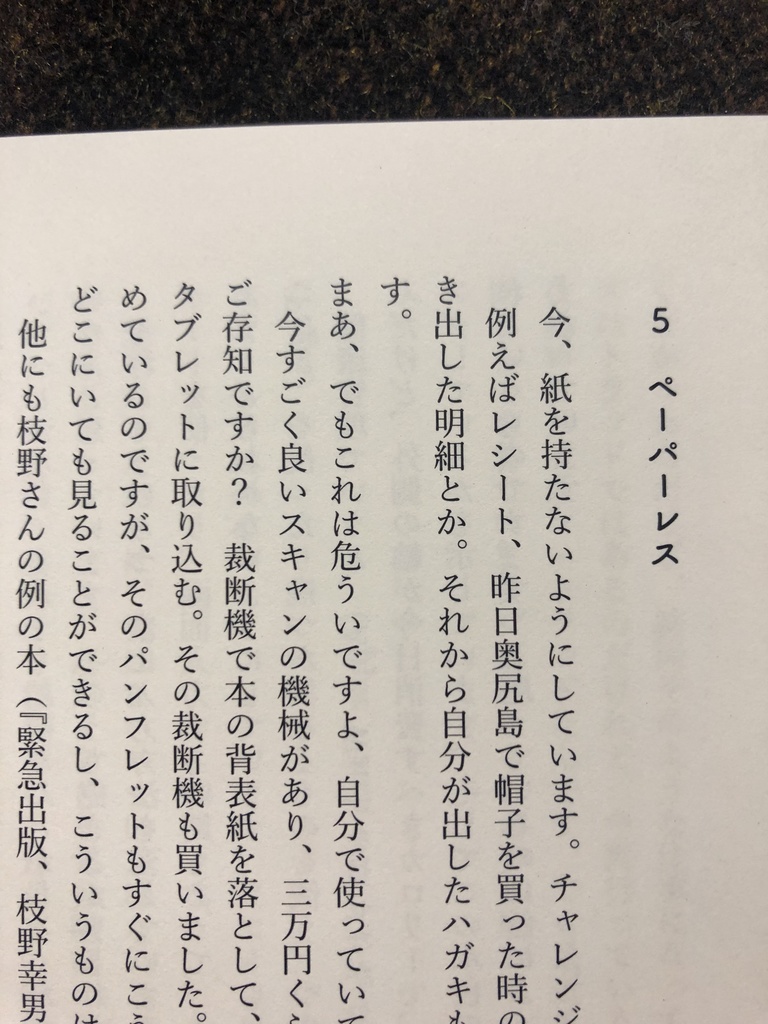 5 ペーパーレス
今、紙を持たないようにしています。チャレンジ
例えばレシート、昨日奥尻島で帽子を買った時の
き出した明細とか。それから自分が出したハガキも
す。
まあ、でもこれは危ういですよ、自分で使っていて
今すごく良いスキャンの機械があり、三万円くら
ご存知ですか? 裁断機で本の背表紙を落として、
タブレットに取り込む。その裁断機も買いました。
めているのですが、そのパンフレットもすぐにこう
どこにいても見ることができるし、こういうものは
他にも枝野さんの例の本(『緊急出版、枝野幸男